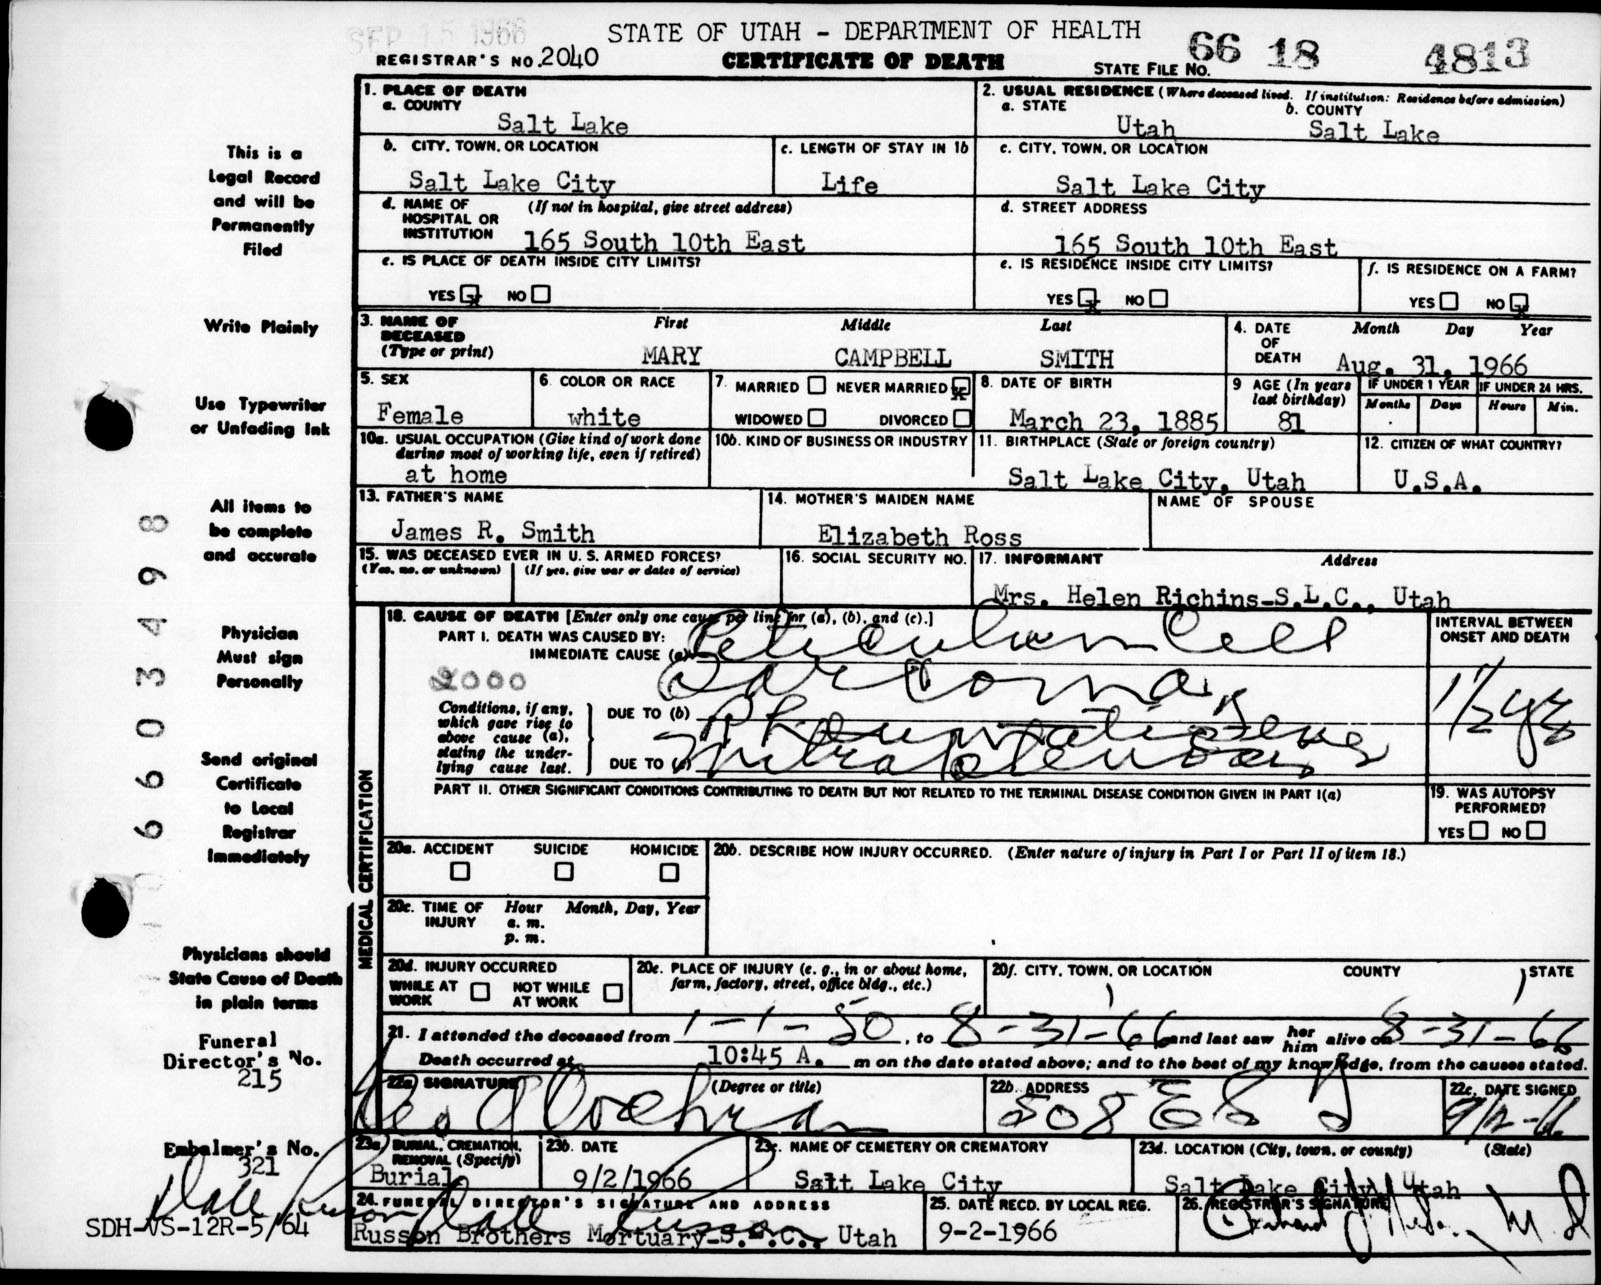 SEP 15 1966
STATE OF UTAH - DEPARTMENT OF HEALTH
REGISTRAR'S NO. 2040
CERTIFICATE OF DEATH
STATE FILE NO. 66 18 4813
This is a
Legal Record
and will be
Permanently
Filed
Write Plainly
Use Typewriter
or Unfading Ink
All items to
be complete
and accurate
Physician
Must sign
Personally
Send original
Certificate
to Local
Registrar
Immediately
Physicians should
State Cause of Death
in plain terms
Funeral
Director's No.
215
Embalmer's No.
321
Dale Russon
SDH-VS-12R-5/64
6 6 0 3 4 9 8
1. PLACE OF DEATH
a. COUNTY
Salt Lake
2. USUAL RESIDENCE (Where deceased lived. If institution: Residence before admission)
a. STATE b. COUNTY
Utah Salt Lake
b. CITY, TOWN, OR LOCATION
Salt Lake City
c. LENGTH OF STAY IN 1b
Life
c. CITY, TOWN, OR LOCATION
Salt Lake City
d. NAME OF (If not in hospital, give street address)
HOSPITAL OR
INSTITUTION 165 South 10th East
d. STREET ADDRESS
165 South 10th East
e. IS PLACE OF DEATH INSIDE CITY LIMITS?
YES x NO
e. IS RESIDENCE INSIDE CITY LIMITS?
YES x NO
f. IS RESIDENCE ON A FARM?
YES NO x
3. NAME OF First Middle Last
DECEASED
(Type or print) MARY CAMPBELL SMITH
4. DATE Month Day Year
OF
DEATH Aug. 31, 1966
5. SEX
Female
6. COLOR OR RACE
white
7. MARRIED NEVER MARRIED x
WIDOWED DIVORCED
8. DATE OF BIRTH
March 23, 1885
9 AGE (In years
last birthday)
81
IF UNDER 1 YEAR
Months Days
IF UNDER 24 HRS.
Hours Min.
10a. USUAL OCCUPATION (Give kind of work done
during most of working life, even if retired)
at home
10b. KIND OF BUSINESS OR INDUSTRY
11. BIRTHPLACE (State or foreign country)
Salt Lake City, Utah
12. CITIZEN OF WHAT COUNTRY?
U.S.A.
13. FATHER'S NAME
James R. Smith
14. MOTHER'S MAIDEN NAME
Elizabeth Ross
NAME OF SPOUSE
15. WAS DECEASED EVER IN U. S. ARMED FORCES?
(Yes, no, or unknown) (If yes, give war or dates of service)
16. SOCIAL SECURITY NO.
17. INFORMANT Address
Mrs. Helen Richins-S.L.C., Utah
MEDICAL CERTIFICATION
18. CAUSE OF DEATH [Enter only one cause per line for (a), (b), and (c).]
PART I. DEATH WAS CAUSED BY:
IMMEDIATE CAUSE (a) Reticulum Cell
2000 Sarcoma
Conditions, if any,
which gave rise to
above cause (a),
stating the under-
lying cause last.
DUE TO (b)
DUE TO (c)
INTERVAL BETWEEN
ONSET AND DEATH
1 1/2 yrs
PART II. OTHER SIGNIFICANT CONDITIONS CONTRIBUTING TO DEATH BUT NOT RELATED TO THE TERMINAL DISEASE CONDITION GIVEN IN PART I(a)
19. WAS AUTOPSY
PERFORMED?
YES NO
20a. ACCIDENT SUICIDE HOMICIDE
20b. DESCRIBE HOW INJURY OCCURRED. (Enter nature of injury in Part I or Part II of item 18.)
20c. TIME OF Hour Month, Day, Year
INJURY a. m.
p. m.
20d. INJURY OCCURRED
WHILE AT NOT WHILE
WORK AT WORK
20e. PLACE OF INJURY (e. g., in or about home,
farm, factory, street, office bldg., etc.)
20f. CITY, TOWN, OR LOCATION COUNTY STATE
21. I attended the deceased from 1-1-50, to 8-31-66 and last saw her him alive on 8-31-66
Death occurred at 10:45 A. m on the date stated above; and to the best of my knowledge, from the causes stated.
22a SIGNATURE (Degree or title)
Geo A Cochran
22b. ADDRESS
508 E S T
22c. DATE SIGNED
9/2-66
23a. BURIAL, CREMATION,
REMOVAL (Specify)
Burial
23b. DATE
9/2/1966
23c. NAME OF CEMETERY OR CREMATORY
Salt Lake City
23d. LOCATION (City, town, or county) (State)
Salt Lake City, Utah
24. FUNERAL DIRECTOR'S SIGNATURE AND ADDRESS
Dale Russon
Russon Brothers Mortuary-S.L.C., Utah
25. DATE RECD. BY LOCAL REG.
9-2-1966
26. REGISTRAR'S SIGNATURE
M D